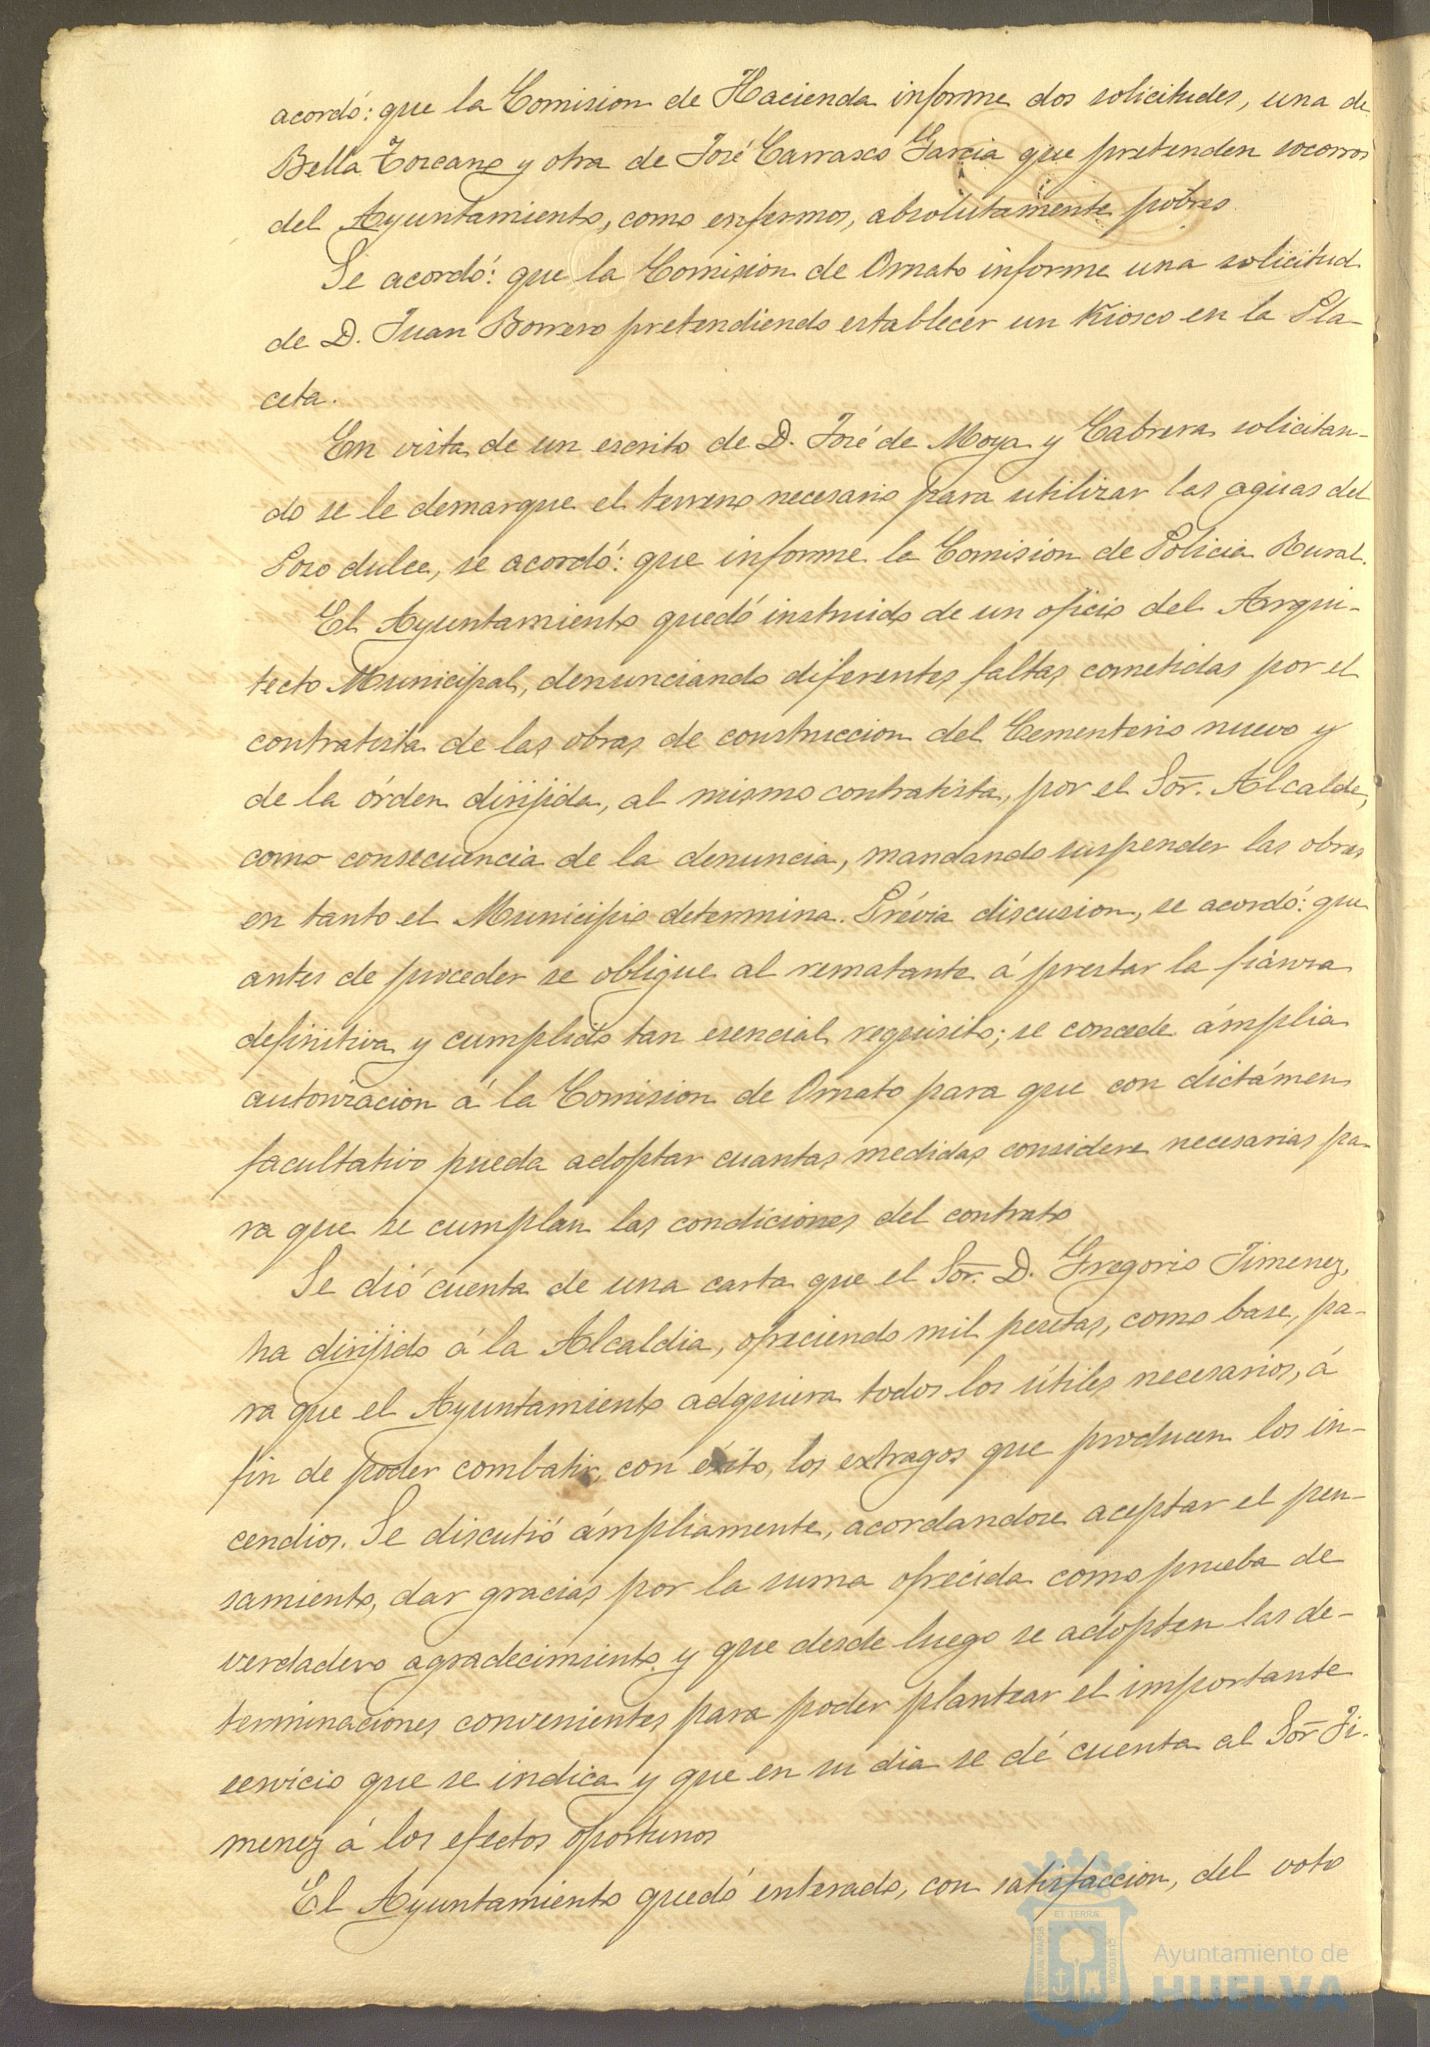 acordó: que la Comision de Hacienda informe dos solicitudes, una de
Bella Toscano y otra de José Carrasco Garcia que pretenden socorros
del Ayuntamiento, como enfermos, absolutamente pobres.
Se acordó: que la Comision de Ornato informe una solicitud
de D. Juan Borrero pretendiendo establecer un Kiosco en la Pla-
ceta.
En vista de un escrito de D. José de Moya y Cabrera solicitan-
do se le demarque el terreno necesario para utilizar las aguas del
Pozo dulce, se acordó: que informe la Comision de Policia Rural.
El Ayuntamiento quedó instruido de un oficio del Arqui-
tecto Municipal, denunciando diferentes faltas cometidas por el
contratista de las obras de construccion del Cementerio nuevo y
de la órden dirijida, al mismo contratista, por el Sor. Alcalde,
como consecuencia de la denuncia, mandando suspender las obras
en tanto el Municipio determina. Prévia discusion, se acordó: que
antes de proceder se obligue al rematante á prestar la fianza
definitiva y cumplido tan esencial requisito; se concede ámplia
autorizacion á la Comision de Ornato para que con dictámen
facultativo pueda adoptar cuantas medidas considere necesarias pa-
ra que se cumplan las condiciones del contrato
Se dió cuenta de una carta que el Sor. D. Gregorio Jimenez,
ha dirijido á la Alcaldia, ofreciendo mil pesetas, como base, pa-
ra que el Ayuntamiento adquiera todos los útiles necesarios, á
fin de poder combatir, con éxito, los extragos que producen los in-
cendios. Se discutió ámpliamente, acordandose aceptar el pen-
samiento, dar gracias por la suma ofrecida como prueba de
verdadero agradecimiento y que desde luego se adopten las de-
terminaciones convenientes para poder plantear el importante
servicio que se indica y que en su dia se dé cuenta al Sor Ji-
menez á los efectos oportunos
El Ayuntamiento quedó enterado, con satisfaccion, del voto
Ayuntamiento de
HUELVA